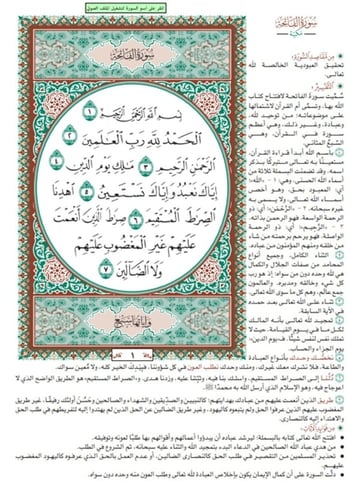 انقر على اسم السورة لتشغيل الملف الصوتي
سُورَةُ الفَاتِحَةِ
بِسْمِ اللَّهِ الرَّحْمَٰنِ الرَّحِيمِ ١
الْحَمْدُ لِلَّهِ رَبِّ الْعَالَمِينَ ٢
الرَّحْمَٰنِ الرَّحِيمِ ٣ مَالِكِ يَوْمِ الدِّينِ ٤
إِيَّاكَ نَعْبُدُ وَإِيَّاكَ نَسْتَعِينُ ٥ اهْدِنَا
الصِّرَاطَ الْمُسْتَقِيمَ ٦ صِرَاطَ الَّذِينَ أَنْعَمْتَ
عَلَيْهِمْ غَيْرِ الْمَغْضُوبِ عَلَيْهِمْ
وَلَا الضَّالِّينَ ٧
وآياتها سبع
١
سُورَةُ الفَاتِحَةِ
مكية
من مقاصد السورة:
تحقيق العبودية الخالصة لله
تعالى.
التفسير:
سُمّيت سورة الفاتحة لافتتاح كتاب
الله بها، وتسمّى أم القرآن لاشتمالها
على موضوعاته؛ من توحيد لله،
وعبادة، وغير ذلك، وهي أعظم
سورة في القرآن، وهي
السبع المثاني.
باسم الله أبدأ قراءة القرآن،
مستعينًا به تعالى متبركًا بذكر
اسمه. وقد تضمنت البسملة ثلاثة من
أسماء الله الحسنى، وهي: ١ - «الله»؛
أي: المعبود بحق، وهو أخص
أسماء الله تعالى، ولا يسمى به
غيره سبحانه. ٢ - «الرَّحْمَٰن»؛ أي: ذو
الرحمة الواسعة. فهو الرحمن بذاته.
٣ - «الرَّحِيم»؛ أي: ذو الرحمة
الواصلة. فهو يرحم برحمته من شاء
من خلقه ومنهم المؤمنون من عباده.
الثناء الكامل، وجميع أنواع
المحامد من صفات الجلال والكمال
هي لله وحده دون من سواه؛ إذ هو رب
كل شيء وخالقه ومدبره. و«العالمون»
جمع عالَم، وهم كل ما سوى الله تعالى.
ثناء على الله تعالى بعد حمده
في الآية السابقة.
تمجيد لله تعالى بأنه المالك
لكل ما في يوم القيامة، حيث لا
تملك نفس لنفس شيئًا. فـ«يوم الدين»:
يوم الجزاء والحساب.
نخصّك وحدك بأنواع العبادة
والطاعة، فلا نشرك معك غيرك، ومنك وحدك نطلب العون في كل شؤوننا، فبيدك الخير كله، ولا مُعين سواك.
دُلَّنا إلى الصراط المستقيم، واسلك بنا فيه، وثبّتنا عليه، وزدنا هدى. و«الصراط المستقيم» هو الطريق الواضح الذي لا
اعوجاج فيه، وهو الإسلام الذي أرسل الله به محمدًا ﷺ.
طريق الذين أنعمت عليهم من عبادك بهدايتهم؛ كالنبيين والصدّيقين والشهداء والصالحين وحسُنَ أولئك رفيقًا، غير طريق
المغضوب عليهم الذين عرفوا الحق ولم يتبعوه كاليهود، وغير طريق الضالين عن الحق الذين لم يهتدوا إليه لتفريطهم في طلب الحق
والاهتداء إليه كالنصارى.
من فوائد الآيات:
افتتح الله تعالى كتابه بالبسملة؛ ليرشد عباده أن يبدؤوا أعمالهم وأقوالهم بها طلبًا لعونه وتوفيقه.
من هدي عباد الله الصالحين في الدعاء البدء بتمجيد الله والثناء عليه سبحانه، ثم الشروع في الطلب.
تحذير المسلمين من التقصير في طلب الحق كالنصارى الضالين، أو عدم العمل بالحق الذي عرفوه كاليهود المغضوب عليهم.
دلّت السورة على أن كمال الإيمان يكون بإخلاص العبادة لله تعالى وطلب العون منه وحده دون سواه.